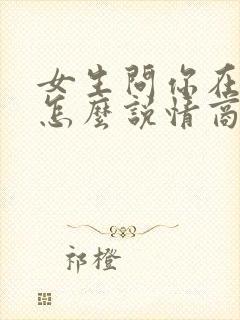 女生問你在
怎麼說情商
祁橙